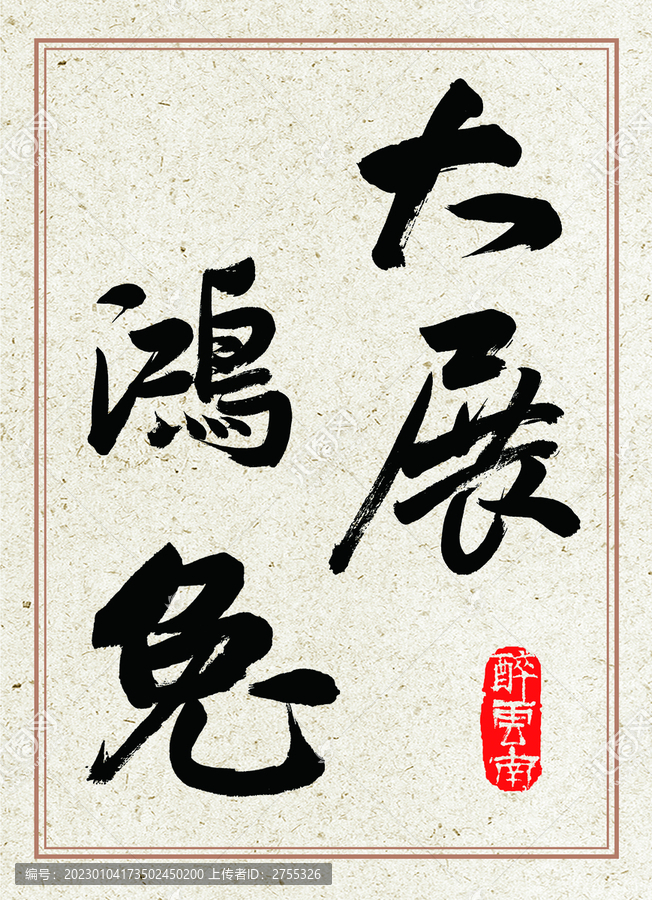 大展
鴻兔
醉雲南
编号：20230104173502450200 上传者ID：2755326